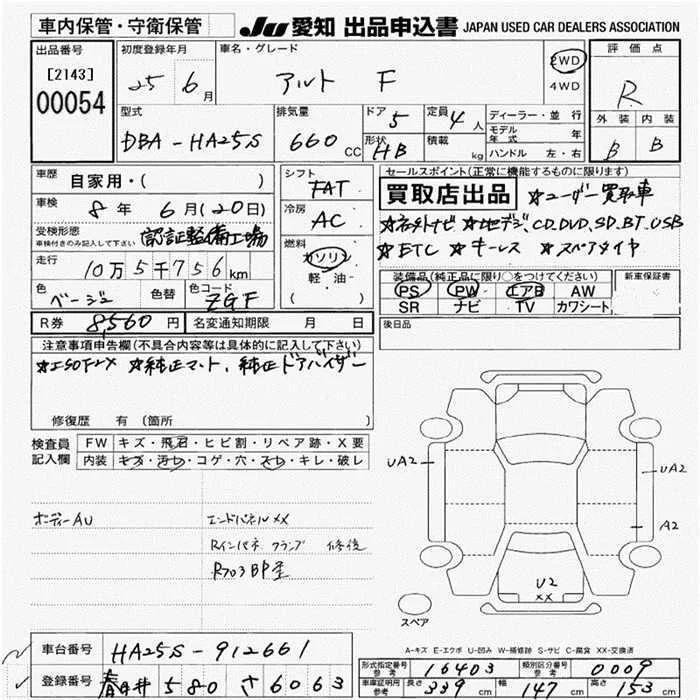 車内保管・守衛保管
JU 愛知 出品申込書 JAPAN USED CAR DEALERS ASSOCIATION
出品番号 初度登録年月 車名・グレード 評価点
[2143]
00054
25 6月 アルト F
2WD
4WD
R
外装 内装
B B
型式 排気量 ドア 5 定員 4人
DBA-HA25S 660cc
形状 HB 積載 kg
ディーラー・並行
モデル年式 年
ハンドル 左・右
車歴 自家用・( )
車検 8年 6月(20日)
受検形態
車検付きのみ記入して下さい
認証整備工場
走行 10万5千756km
色 ベージュ 色替 色コード ZGF
シフト FAT
冷房 AC
燃料 ガソリン
軽油
( )
セールスポイント(正常に機能するものに限ります)
買取店出品 ☆ユーザー買取車
☆社外ナビ ☆地デジ、CD.DVD.SD.BT.USB
☆ETC ☆キーレス ☆スペアタイヤ
装備品(純正品に限り○をつけてください) 新車保証書
PS PW エアB AW
SR ナビ TV カワシート
R券 8,560円 名変通知期限 月 日
後日品
注意事項申告欄(不具合内容等は具体的に記入して下さい)
☆ISOFIX ☆純正マット、純正ドアバイザー
修復歴 有 (箇所
検査員記入欄
FW キズ・飛石・ヒビ割・リペア跡・X要
内装 キズ・汚レ・コゲ・穴・スレ・キレ・破レ
ボディーAU エンドパネルXX
Rインパネ クランプ 修後
R703BP歪
UA2
UA2
A2
U2
XX
スペア
A-キズ E-エクボ U-凹み W-補修跡 S-サビ C-腐食 XX-交換済
車台番号 HA25S-912661
登録番号 春日井 580 さ 6063
形式指定番号 参考 16403 類別区分番号 参考 0009
車庫証明用 参考 長さ 339 幅 147 高さ 153 cm